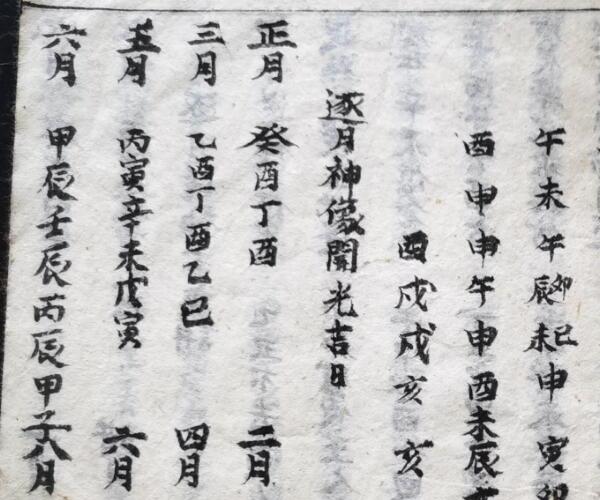 午未午辰卯未巳申寅卯
酉申申午申酉未辰
酉戌戌亥亥
逐月神像開光吉日
正月 癸酉丁酉 二月
三月 乙酉丁酉乙巳 四月
五月 丙寅辛未戊寅 六月
六月 甲辰壬辰丙辰甲子八月